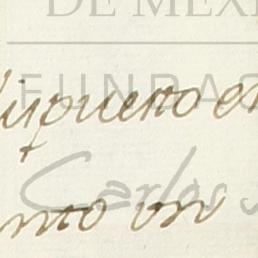 DE MEXI
FUNDAC
dispuesto en
Carlos S
nto uso